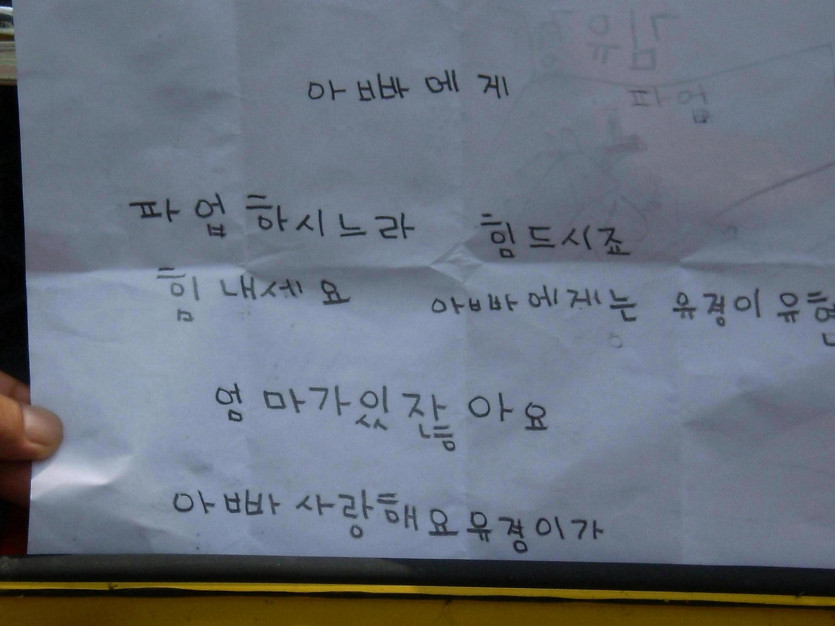 아빠에게
파업
파업하시느라 힘드시죠
힘내세요 아빠에게는 유경이 유현
엄마가있잖아요
아빠 사랑해요 유경이가